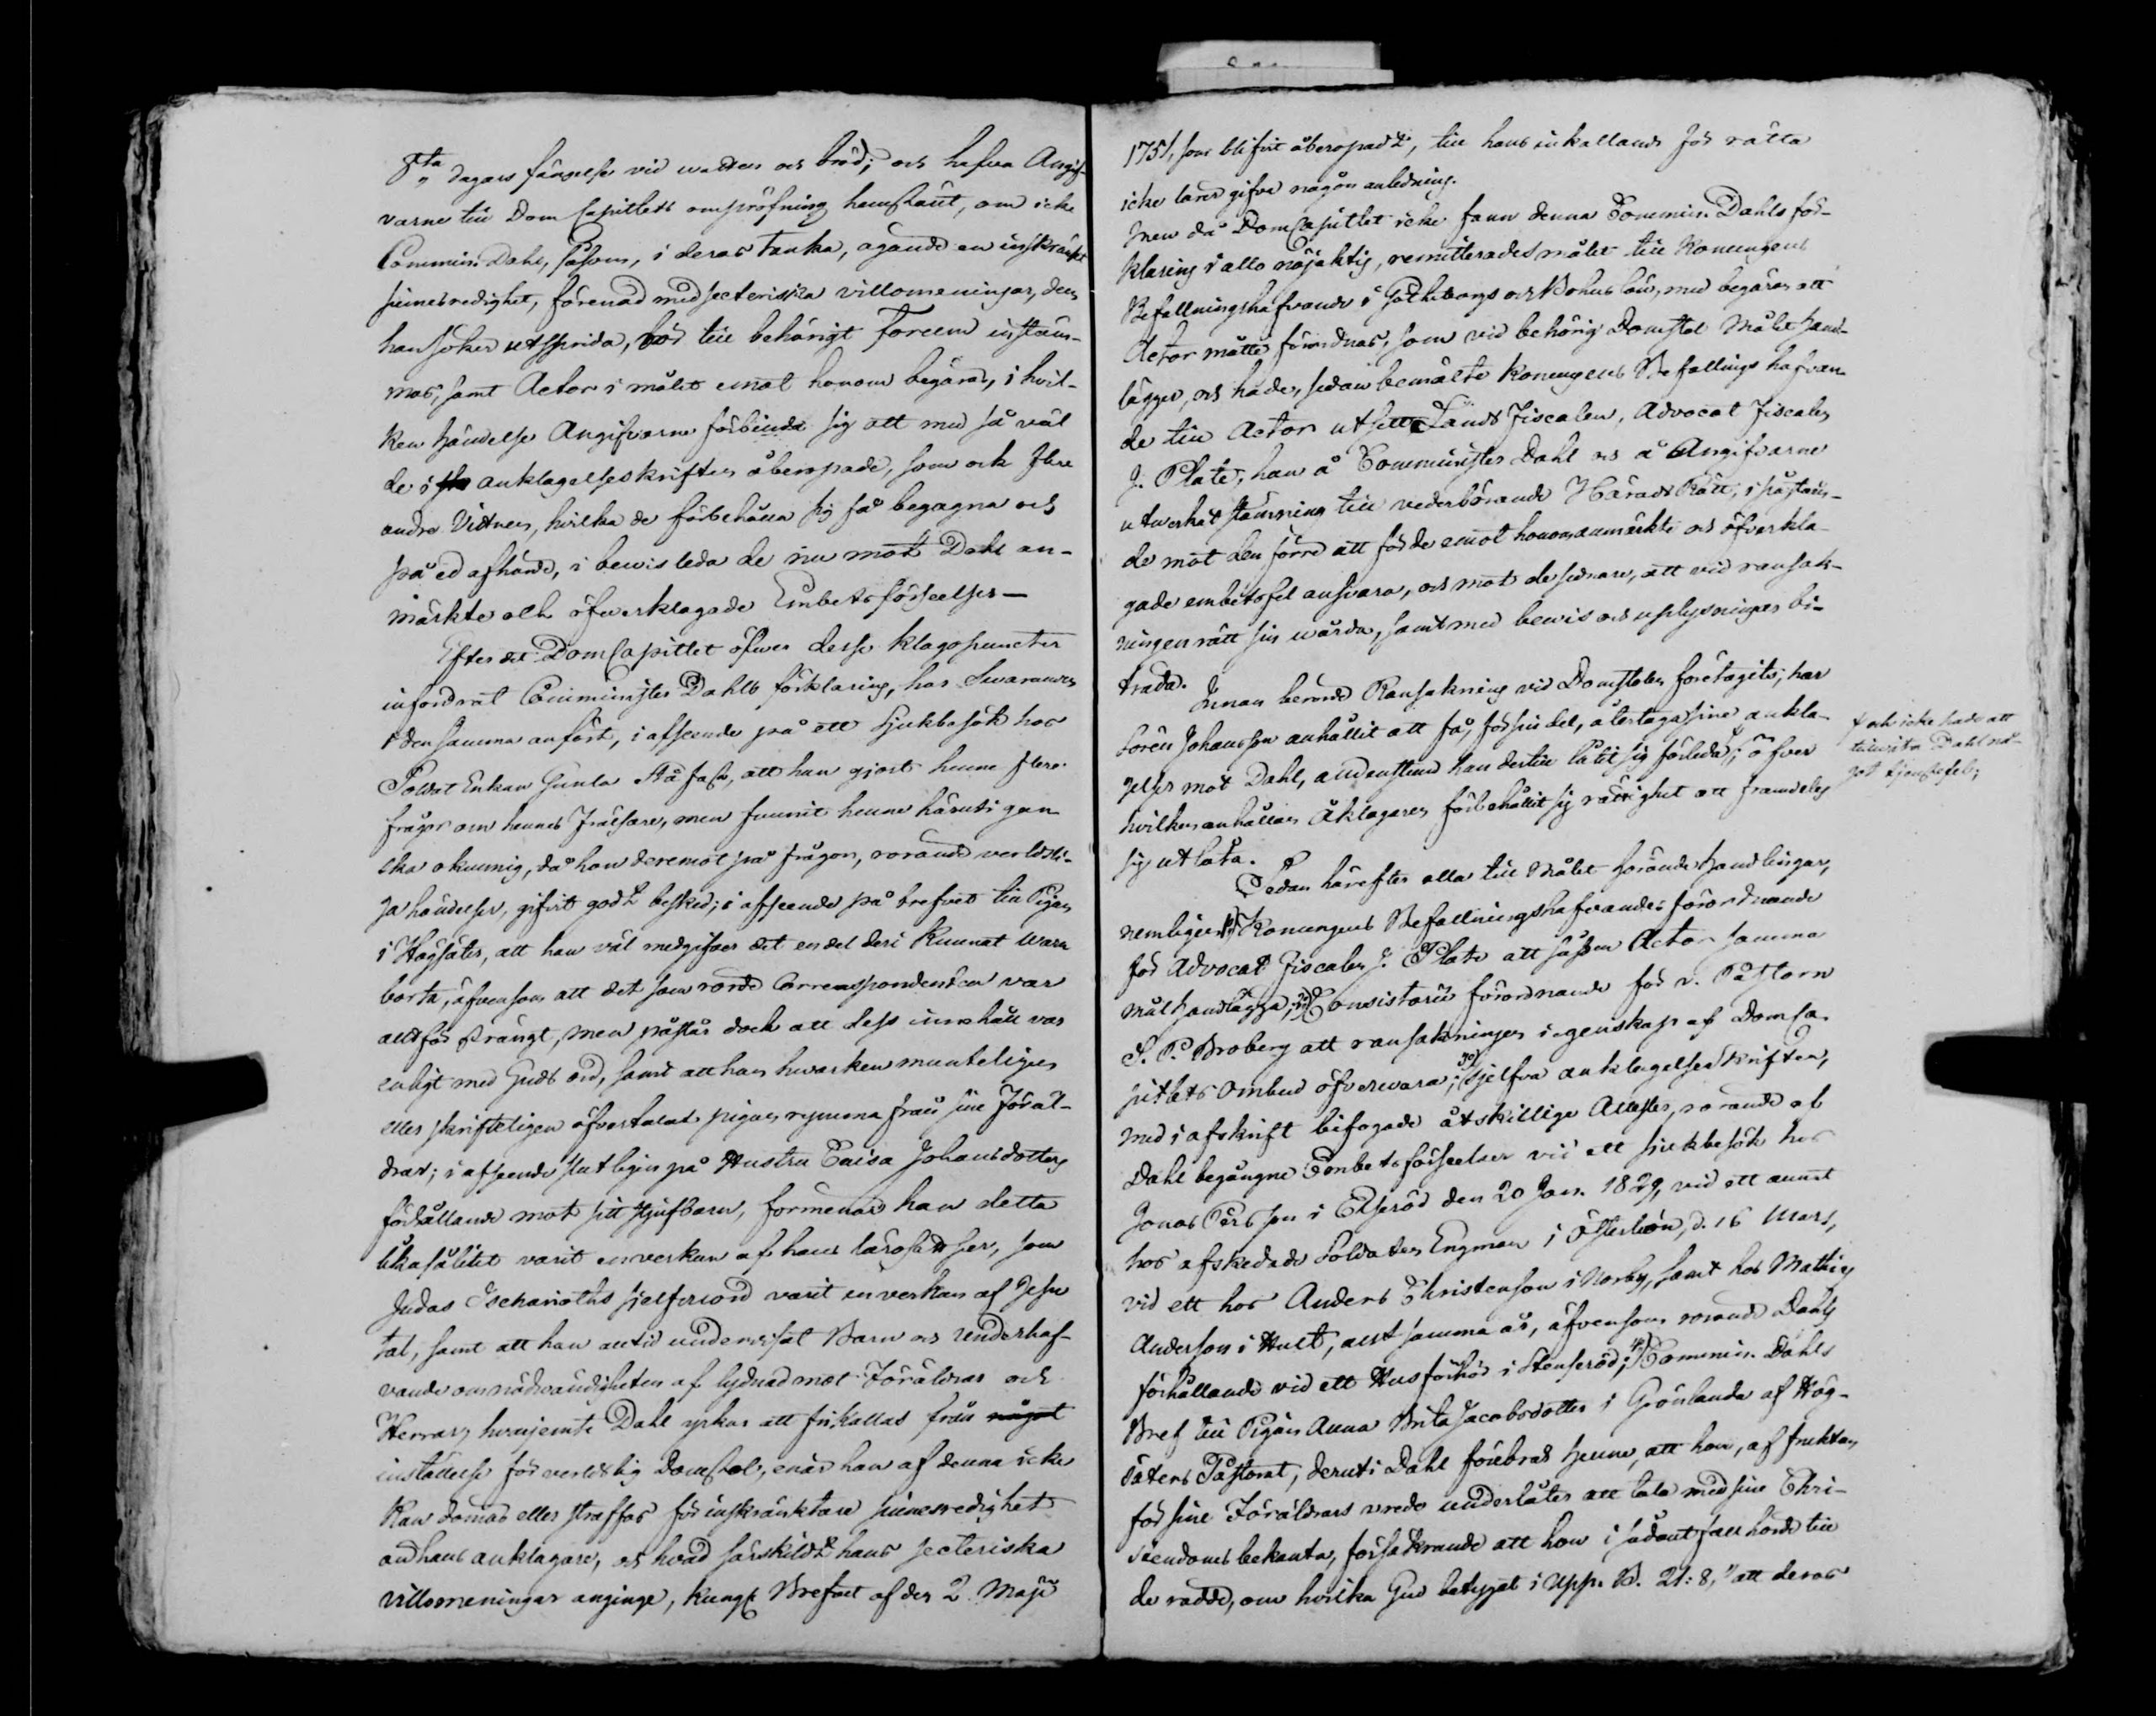 8ta dagars fängelse vid watten och bröd; och hafva Angif-
varne till Dom Capitlets ompröfning hemstält, om icke
Commin. Dahl, såsom, i deras tanka, ägande en inskränkt
sinnesredighet, förenad med secteriska villomeningar, dem
han söker utsprida, bör till behörigt Forum instäm-
mas, samt Actor i målet emot honom begäras, i hvil-
ken händelse Angifvarne förbinda sig att med så väl
de i anklagelseskriften åberopade, som ock flere
andre Vittnen, hvilka de förbehålla sig få begagna och
på ed afhörde, i bewis leda de nu mot Dahl an-
märkte och öfwerklagade Embetsförseelser—
Efter det DomCapitlet öfwer desse klagopuncter
infordrat Comminister Dahls förklaring, har Swaranden
i densamma anfört, i afseende på ett Sjukbesök hos
Soldat Enkan Gunla Stå fast, att han gjort henne flere
frågor om hennes Frälsare, men funnit henne häruti gan-
ska okunnig, då hon deremot på frågor, rörande verldsli-
ga händelser, gifvit godt besked; i afseende på brefvet till Pigan
i Högsäter, att han väl medgifver det en del deri kunnat wara
borta, äfvensom att det som rörde Correspondenten var
alltför strängt, men påstår dock att dess innehåll var
enligt med Guds ord, samt att han hwarken munteligen
eller skrifteligen öfvertalat pigan rymma från sine Föräl-
drar; i afseende slutligen på Hustru Caisa Johansdotters
förhållande mot sitt Styfbarn, förmenar han detta
likasålitet varit en verkan af hans lärosattser, som
Judas Ischarioths sjelfmord varit en verkan af Jesu
tal, samt att han alltid undervisat Barn och underhaf-
vande om nödvändigheten af lydnad mot Föräldrar och
Herrar; hvarjemte Dahl yrkar att frikallas från något
inställelse för verldslig Domstol, enär han af denna icke
kan dömas eller straffas för inskränktare sinnesredighet
än hans anklagare, och hvad särskildt hans secteriska
villomeningar anginge, Kungl Brefvet af den 2 Maji
1751, som blifvit åberopadt, till hans inkallande för rätta
icke lärer gifva någon anledning.
Men då DomCapitlet icke fann denna Commin. Dahls för-
klaring i allo nöjaktig, remitterades målet till Konungens
Befallningshafvande i Götheborgs och Bohus län, med begäran att
Actor måtte förordnas, som vid behörig Domstol Målet hand-
lägger, och hade, sedan bemälte Konungens Befallningshafvan-
de till Actor utsett LandsFiscalen, Advocat Fiscalen
J. Plate, han å Comminister Dahl och å Angifvarne
utverkat stämning till vederbörande Härads Rätt, i påståen-
de mot den förre att för de emot honom anmärkte och öfverkla-
gade embetsfel ansvara, och mot de sednare, att vid ransak-
ningen rätt sin wårda, samt med bewis och uplysningar bi-
träda.
Innan berörde Ransakning vid Domstolen företagits, har
Sören Johansson anhållit att få, för sin del, återtaga sine ankla-
gelser mot Dahl, alldenstund han dertill låtit sig förleda; öfver
hvilken anhållan Åklagaren förbehållit sig rättighet att framdeles
sig utlåta.
# och icke hade att
tillvita Dahl nå-
got tjenstefel;
Sedan härefter alla till Målet hörande handlingar,
nemligen 1o) Konungens Befallningshafvandes förordnande
för Advocat Fiscalen J. Plate att såsom Actor samma
mål handlägga; 2o) Consistorii förordnande för v. Pastorn
S. P. Broberg att ransakningen i egenskap af DomCa-
pitlets Ombud öfverwara; 3o) sjelfva anklagelseskriften,
med i afskrift bifogade åtskillige Attester, rörande af
Dahl begångne Embetsförseelser vid ett sjukbesök hos
Jonas Persson i Elseröd den 20 Jan. 1829, vid ett annat
hos afskedade Soldaten Engman i Österlien, d. 16 Mars,
vid ett hos Anders Christenson i Norby, samt hos Mathias
Anderson i Hult, allt samma år, äfvensom rörande Dahls
förhållande vid ett Husförhör i Stenseröd; 4o) Commin. Dahls
Bref till Pigan Anna Brita Jacobsdotter i Grönlanda af Hög-
säters Pastorat, deruti Dahl förebrår henne, att hon, af fruktan
för sine Föräldrars vrede underlåter att tala med sine Chri-
stendoms bekanta, försäkrande att hon i sådant fall hörde till
de rädde, om hvilka Gud betygat i Upp. B. 21: 8, "att deras